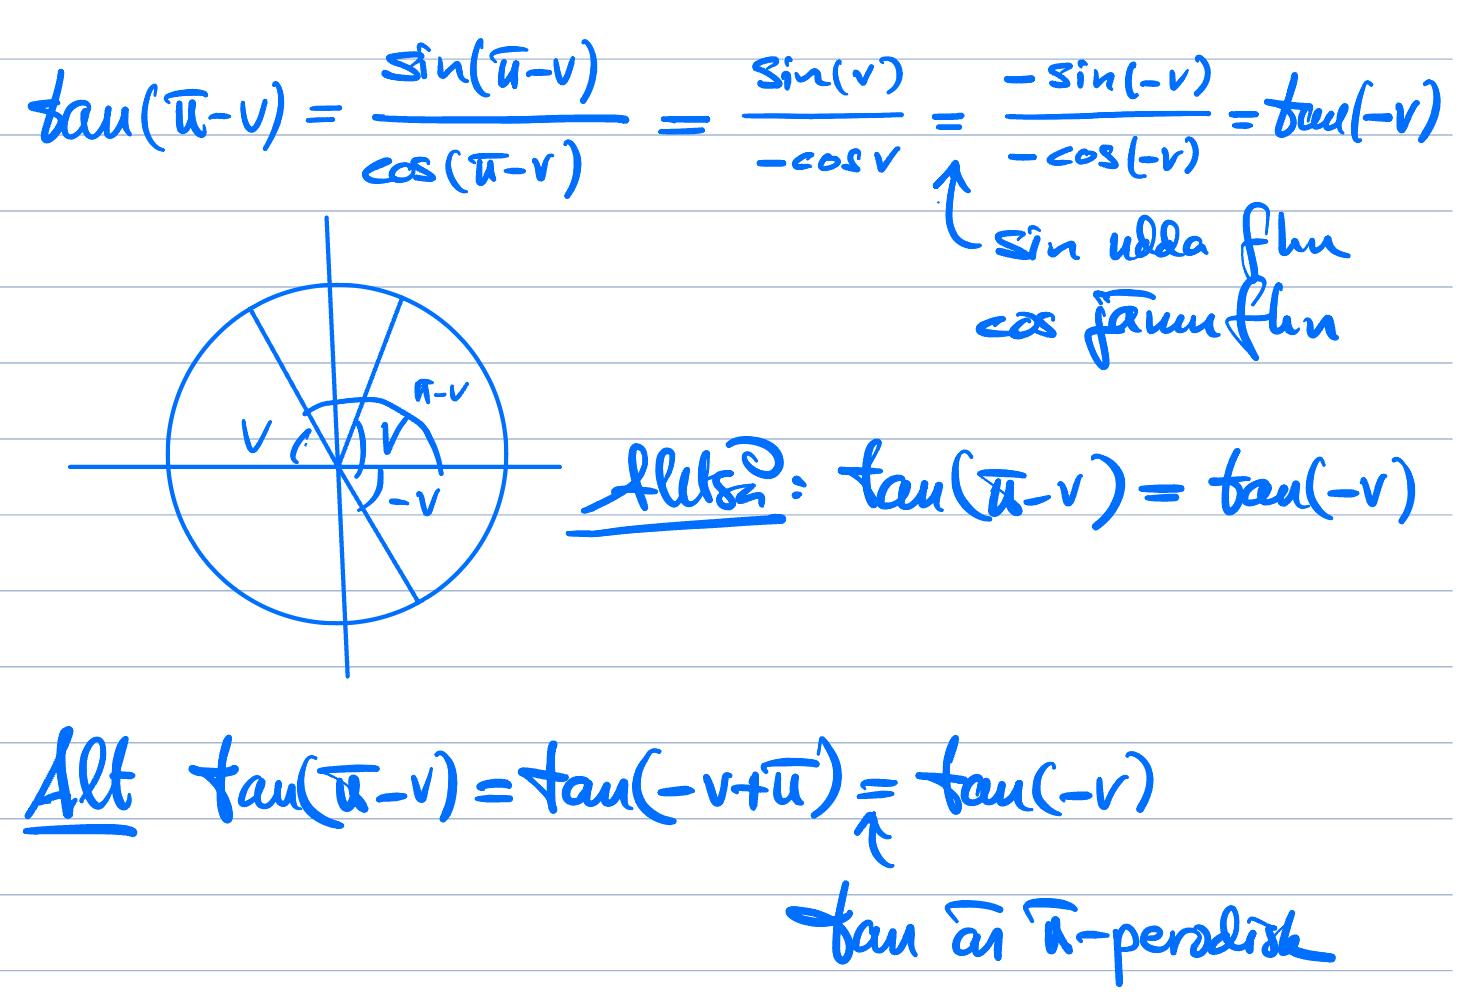 tan(π-v) = sin(π-v)/cos(π-v) = sin(v)/-cos v = -sin(-v)/-cos(-v) = tan(-v)
sin udda fkn
cos jämn fkn
π-v
v
v
-v
Alltså: tan(π-v) = tan(-v)
Alt tan(π-v) = tan(-v+π) = tan(-v)
tan är π-perodisk